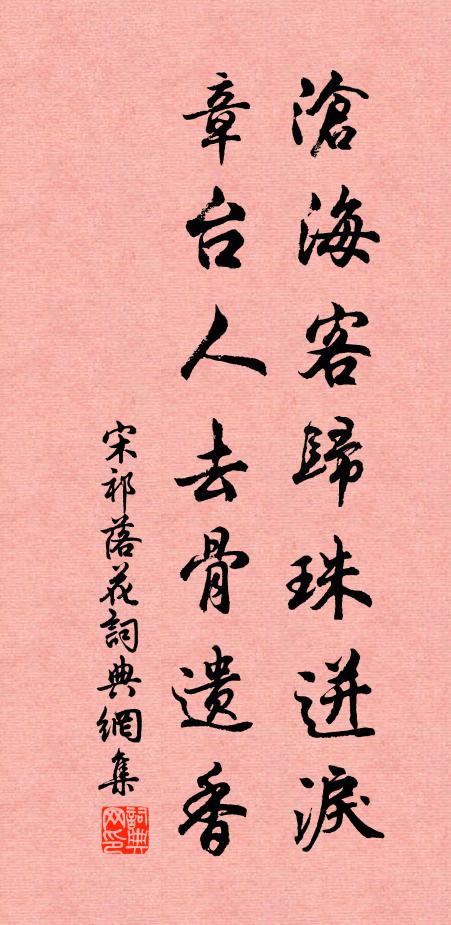 滄海客歸珠迸淚
章台人去骨遺香
宋祁落花詞典網集
詞典網印